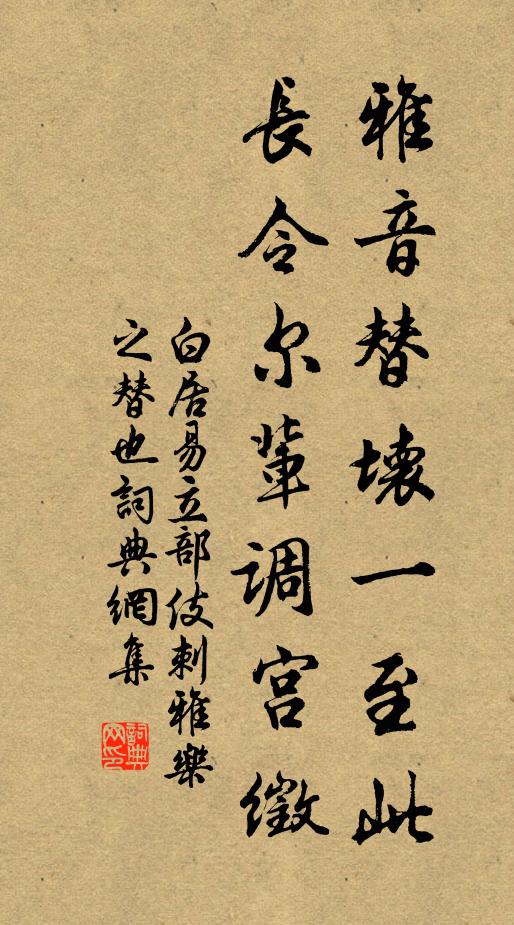 雅音替壊一至此
長令尔輩调宫徵
白居易立部伎刺雅樂
之替也詞典網集
詞典
网印